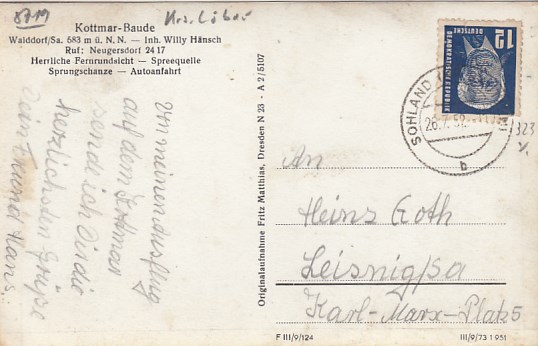 8719
Krs. Löbau
Kottmar-Baude
Walddorf/Sa. 583 m ü. N. N. — Inh. Willy Hänsch
Ruf: Neugersdorf 24 17
Herrliche Fernrundsicht — Spreequelle
Sprungschanze — Autoanfahrt
Von meinen Ausflug
auf dem Kottmar
sende ich Dir die
herzlichsten Grüße
Dein Freund Hans.
Originalaufnahme Fritz Matthias, Dresden N 23 - A 2/5107
12
DEUTSCHE
DEMOKRATISCHE REPUBLIK
SOHLAND
26.7.52
b
323
An
Heinz Goth
Leisnig/Sa
Karl-Marx-Platz 5
F III/9/124
III/9/73 1 951